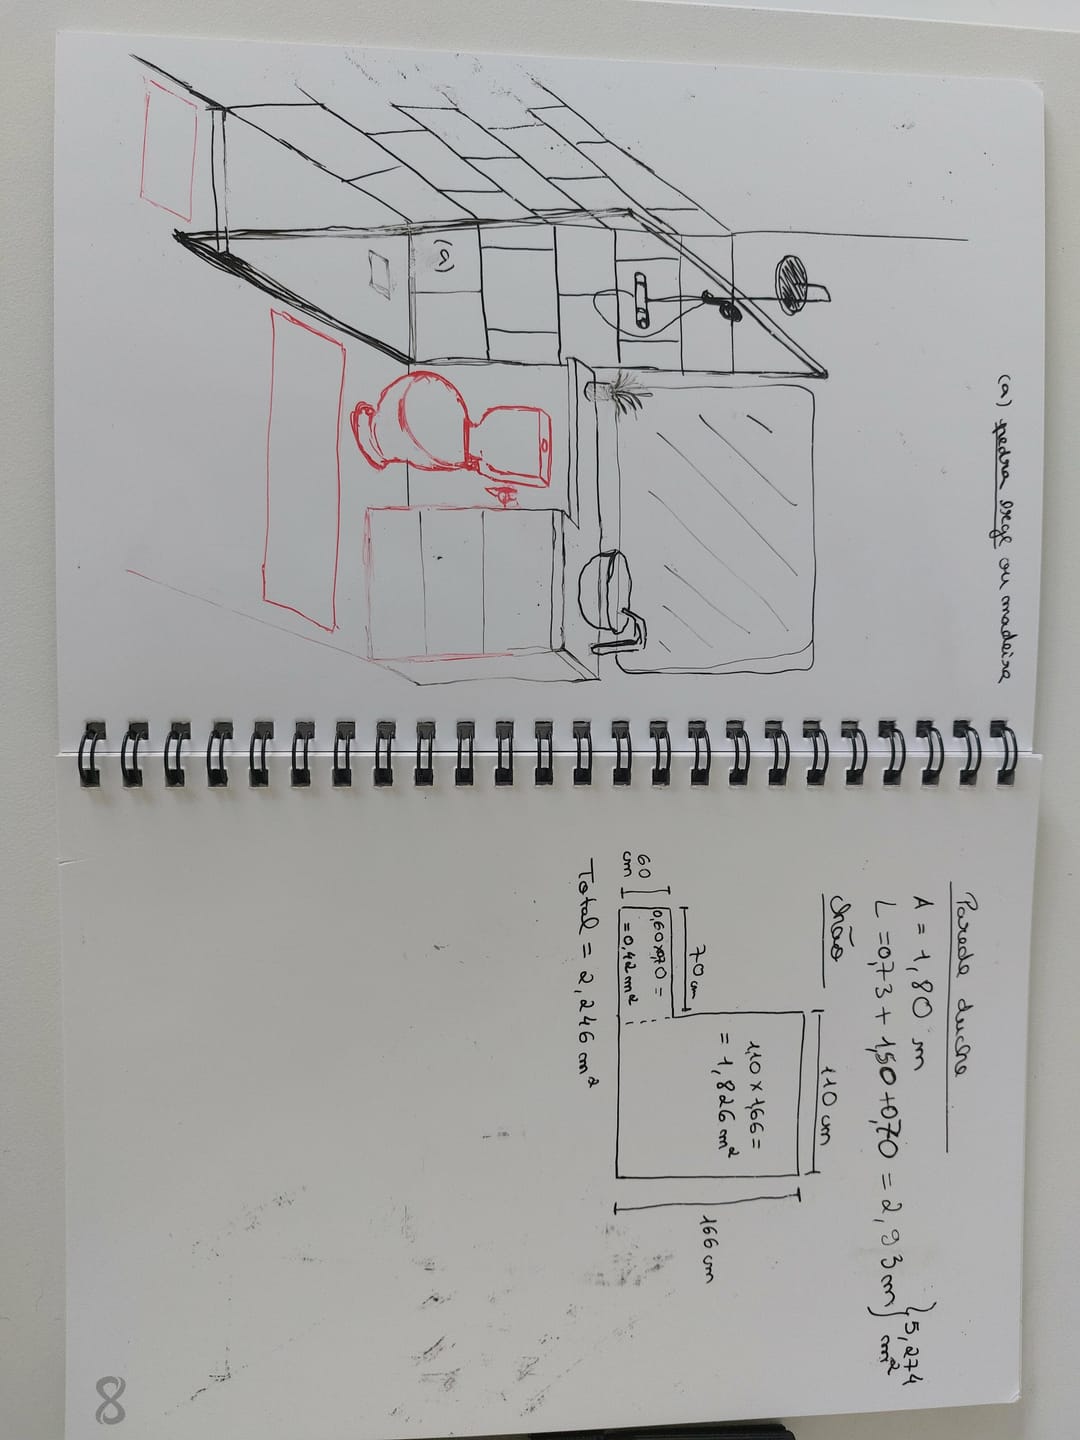 (a) pedra bege ou madeira
(a)
Parede duche
A = 1,80 m
L = 0,73 + 1,50 + 0,70 = 2,93 m
5,274 m²
chão
110 cm
70 cm
1,10 x 1,66 =
= 1,826 m²
166 cm
60 cm
0,60x0,70 =
= 0,42 m²
Total = 2,246 m²
8